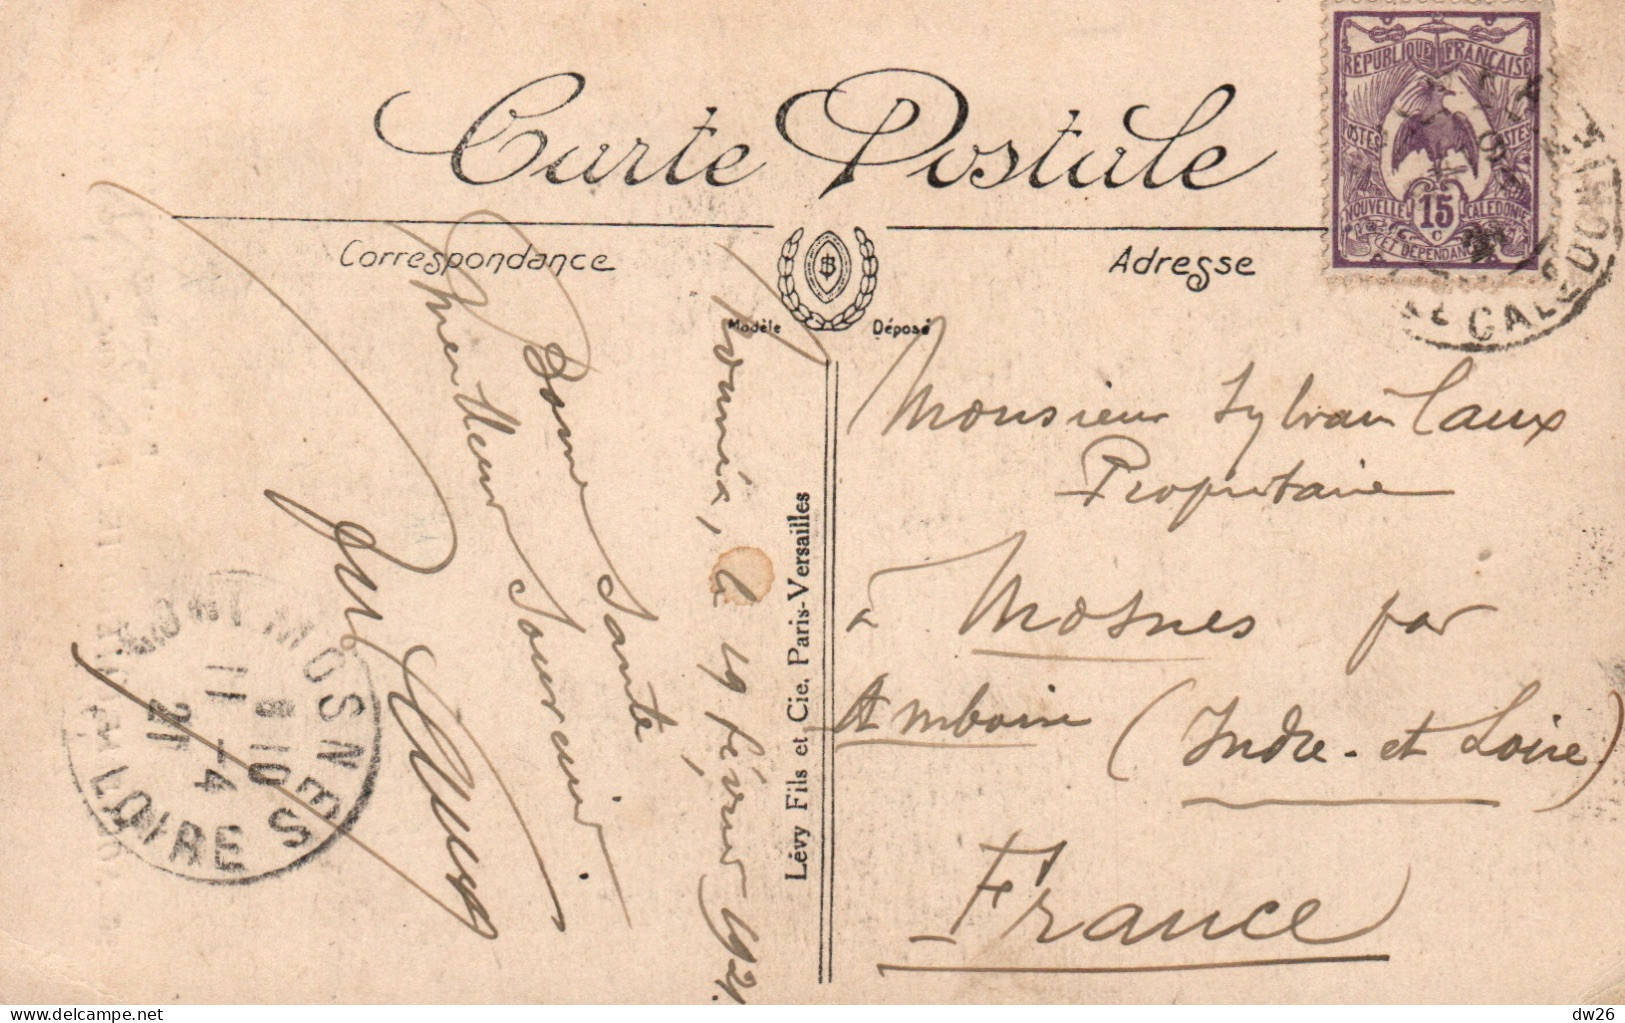 Carte Postale
Correspondance
Adresse
Modèle Déposé
RÉPUBLIQUE FRANÇAISE
POSTES POSTES
15 c
NOUVELLE CALÉDONIE
ET DÉPENDANCES
CALEDONIE
Nouméa, le 19 février 1921.
Bonne Santé,
Meilleur Souvenir
Lévy Fils et Cie, Paris-Versailles
Monsieur Sylvain Caux
Propriétaire
à Mosnes par
Amboise (Indre-et-Loire)
France
MOSNES
8 10
11 -4
21
LOIRE
delcampe.net
dw26